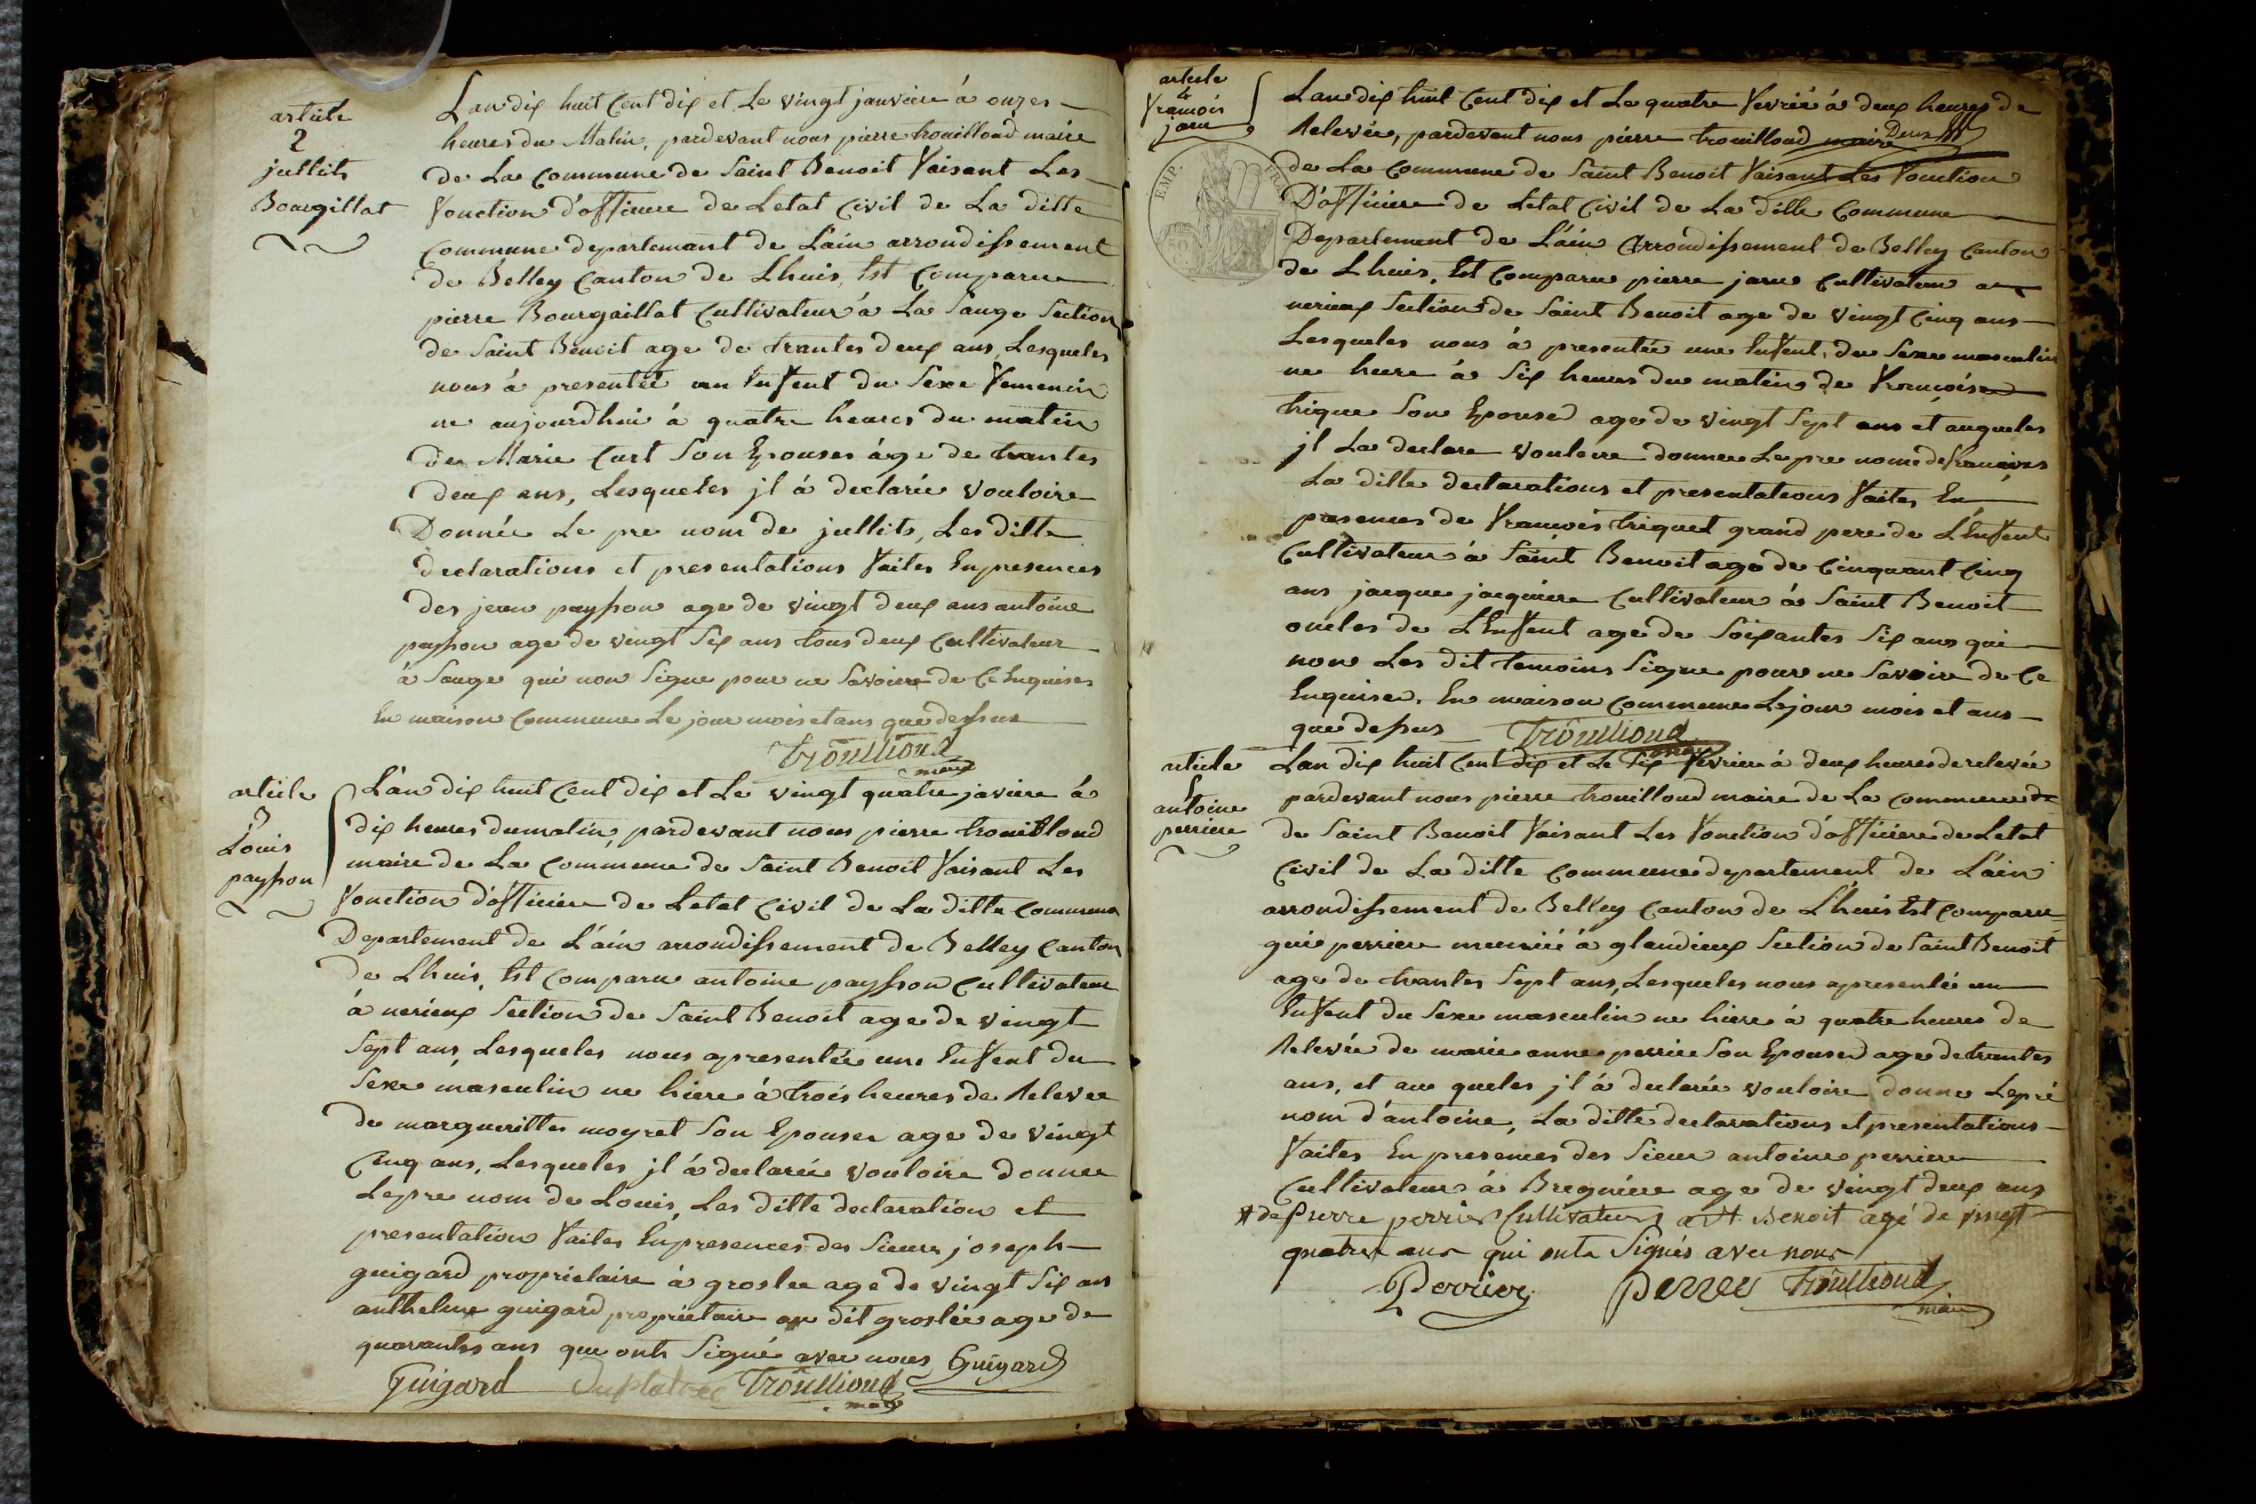 article
2
jullits
Bourgillat
Lan dix huit Cent dix et Le vingt janviere à onzes
heures du Matin, pardevant nous pierre trouilloud maire
de La Commune de Saint Benoit Faisant Les
Fonction d'officiere de Letat Civil de La ditte
Commune departemant de L'ain arrondissement
de Belley Canton de Lhuis, Est Comparu
pierre Bourgaillat Cultivateur à La Sauge Section
de Saint Benoit age de trantes deux ans, Lesqueles
nous à presentée un Enfent du Sexe Femenin
ne aujourdhui à quatre heures du matin
de Marie Curt Son Epouses âge de trantes
deux ans, Lesqueles jl à declarée vouloire
Donnée Le pre nom de jullits, Les ditte
declarations et presentations Faites En presences
des jean paysson age de vingt deux ans antoine
paysson age de vingt Six ans tous deux Cultivateur
à Sauge qui non Signe pour ne Savoire de Ce Enquises
En maison Commune Le jour mois et ans que dessus
Trouilloud
maire
article
3
Louis
paysson
L'an dix huit Cent dix et Le vingt quatre javiere à
dix heures du matin, pardevant nous pierre trouilloud
maire de La Commune de Saint Benoit Faisant Les
Fonction d'officiere de Letat Civil de La ditte Commune
Departement de L'ain arrondissement de Belley Canton
de Lhuis, Est Comparu antoine paysson Cultivateur
à nerieux Section de Saint Benoit age de vingt
Sept ans, Lesqueles nous apresentée une Enfent du
Sexe masculin ne hiere à trois heures de Relevee
de margueritte moyret Son Epouses age de vingt
Cinq ans, Lesqueles jl à declarée vouloire donnee
Le pre nom de Louis, Les ditte declaration et
presentation Faites En presences des Sieurs joseph
guigard proprietaire à groslee age de vingt Six ans
anthelme guigard proprietaire au dit groslée age de
quarantes ans qui onts Signé avec nous Guigard
Guigard Trouilloud
maire
article
4
Francois
jaru
Lan dix huit Cent dix et Le quatre Fevrié à deux heures de
Relevée, pardevant nous pierre trouilloud maire
de La Commune de Saint Benoit Faisant Les Fonction
D'officiere de Letat Civil de La ditte Commune
Departement de L'ain Arrondissement de Belley Canton
de Lhuis, Est Comparu pierre jaru Cultivateur a
nerieux Section de Saint Benoit age de vingt Cinq ans
Lesqueles nous à presentée une Enfent, du Sexe masculin
ne hiere à Six heures du matin de Francoise
trique Son Epouse age de vingt Sept ans et auqueles
jl La declare vouloire donnee Le pre nom de francois,
La ditte declarations et presentations Faites En
presences de Francois triquet grand pere de L'Enfent
Cultivateur à Saint Benoit age de Cinquant Cinq
ans jacque jacquiere Cultivateur à Saint Benoit
oncles de L'Enfent age de Soixantes Six ans qui
non Les dit temoins Signe pour ne Savoire de Ce
Enquises. En maison Commune Le jour mois et ans
que dessus Trouilloud
maire
article
5
antoine
perriere
Lan dix huit Cent dix et Le Six Fevriere à deux heures de relevée
pardevant nous pierre trouilloud maire de La Commune de
de Saint Benoit Faisant Les Fonction d'officiere de Letat
Civil de La ditte Commune departement de L'ain
arrondissement de Belley Canton de Lhuis Est Comparu
gui perriere meunié à glandieux Section de Saint Benoit
age de trantes Sept ans, Lesqueles nous apresentée un
Enfent du Sexe masculin ne hiere à quatre heures de
Relevée de marie anne perrie Son Epouse age de trantes
ans, et au queles jl à declarée vouloire donne Le pré
nom d'antoine, La ditte declarations et presentations
Faites En presences des Sieur antoine perriere
Cultivateur à Bregniere age de vingt deux ans
# de pierre perrier Cultivateur a St Benoit agé de vingt
quatre ans qui onts Signés avec nous
Perrier Perrer Trouilloud
maire
EMP.